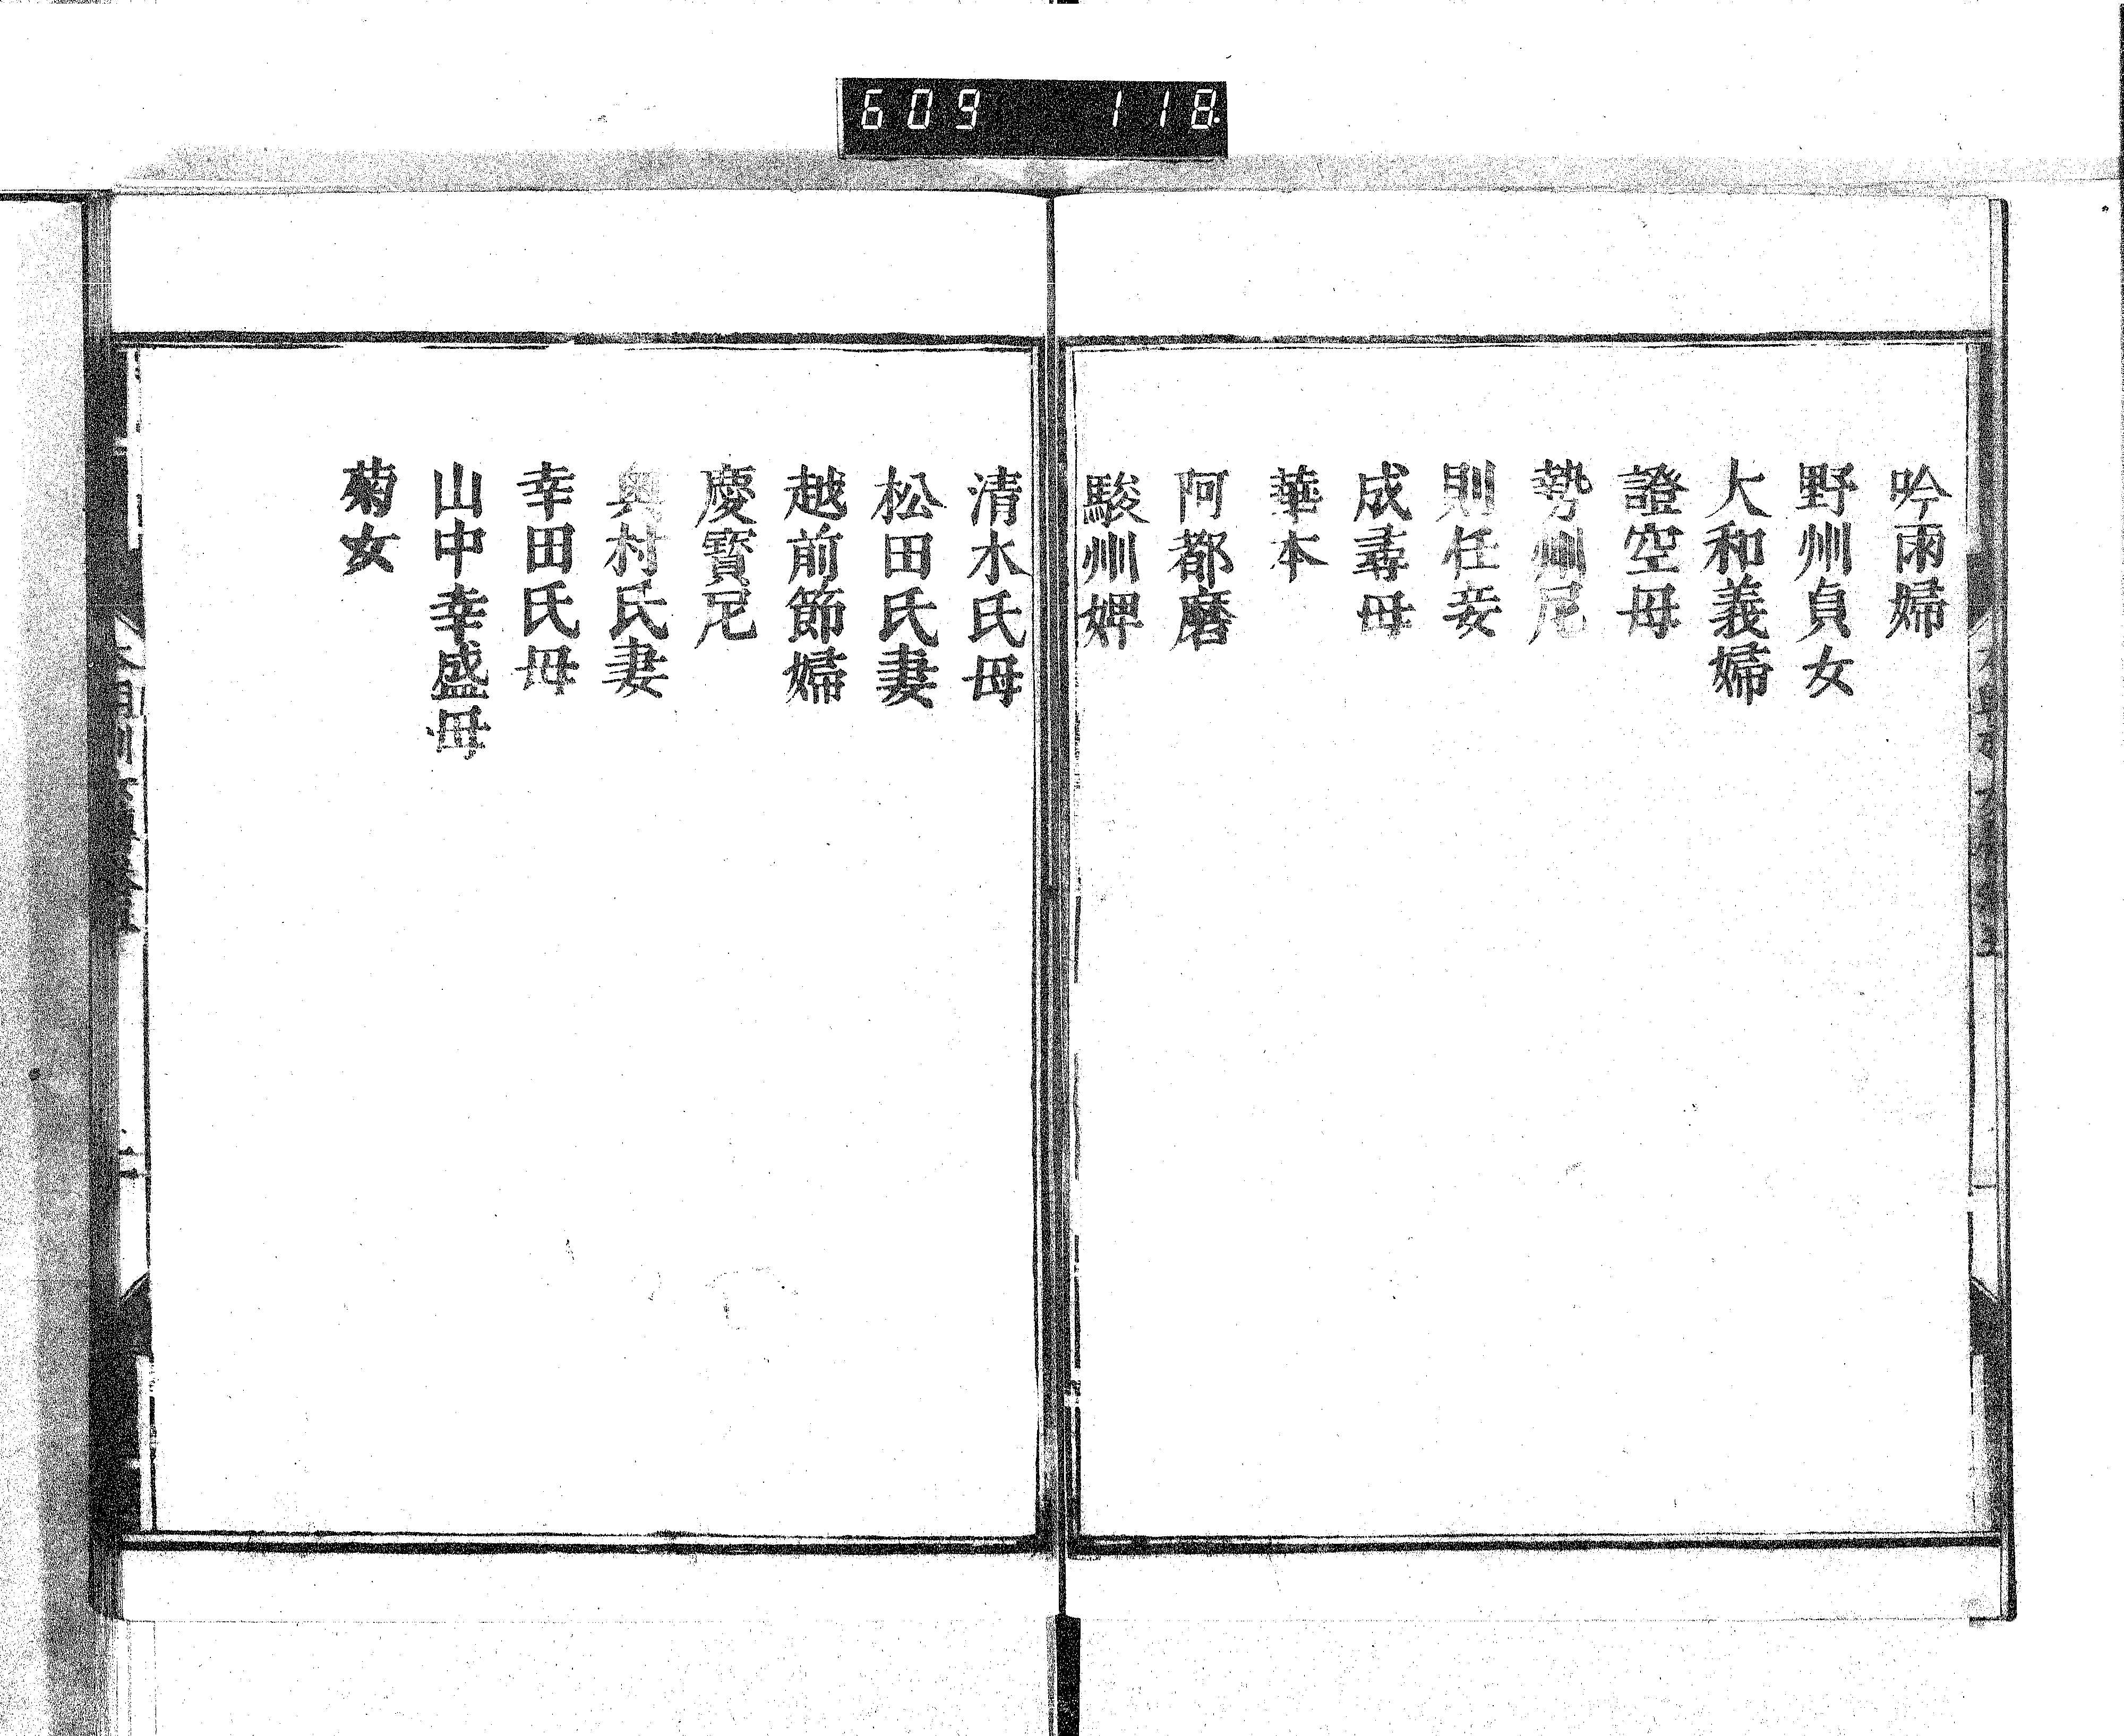 609 118.
吟雨婦
野州貞女
大和義婦
證空母
勢州尼
則任妾
成尋母
華本
阿都磨
駿州婢
清水氏母
松田氏妻
越前節婦
慶寳尼
奥村氏妻
幸田氏母
山中幸盛母
菊女